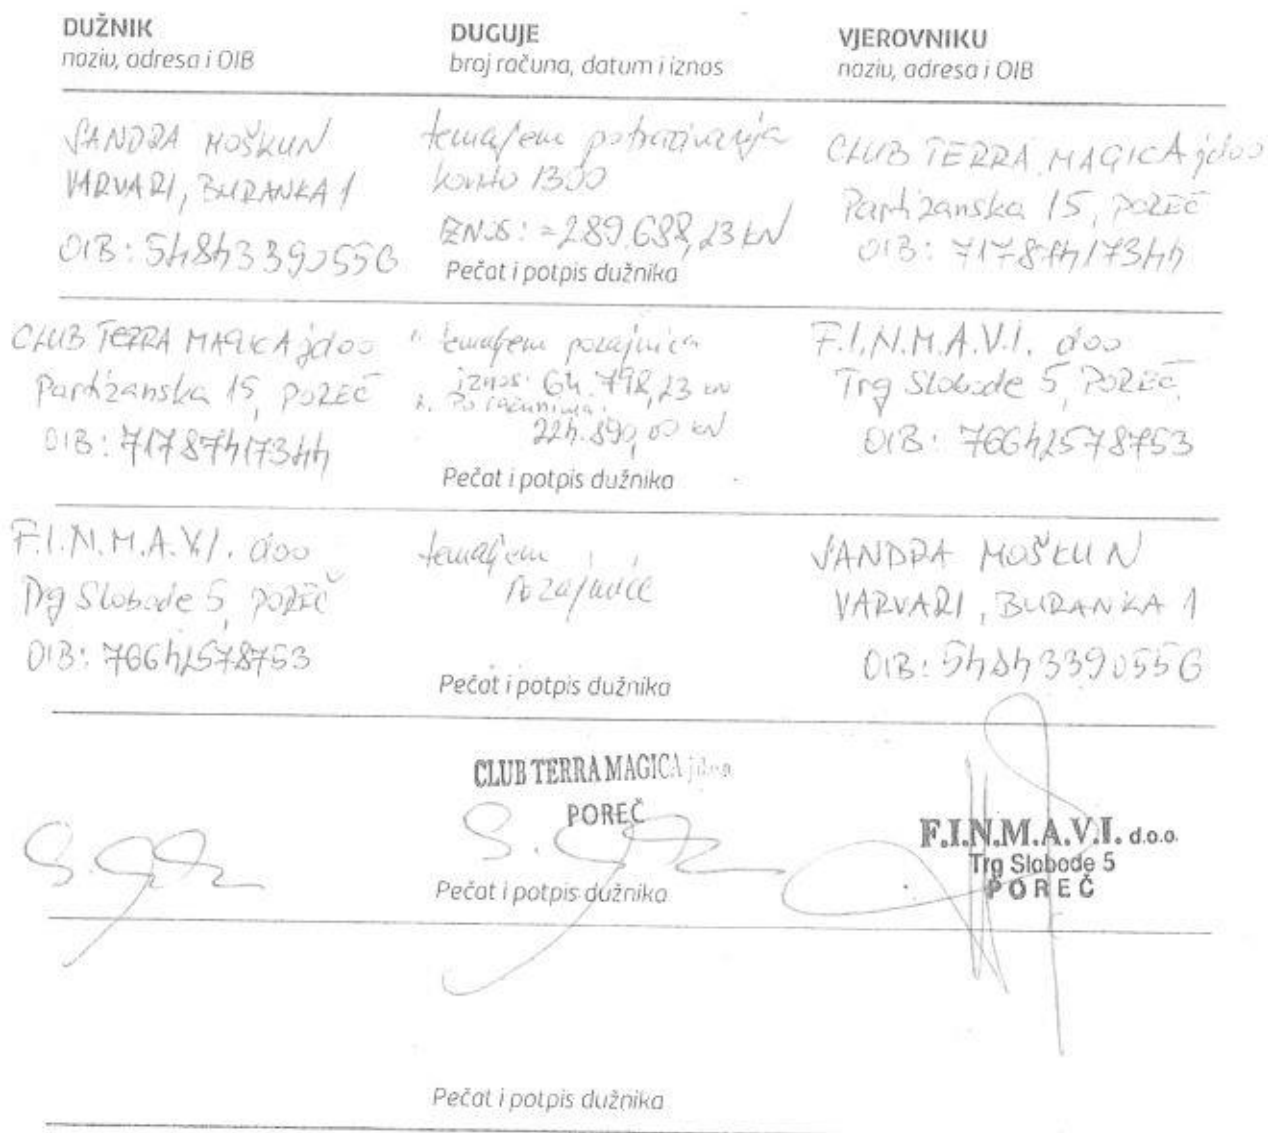 DUŽNIK
naziv, adresa i OIB
DUGUJE
broj računa, datum i iznos
VJEROVNIKU
naziv, adresa i OIB
SANDRA MOŠKUN
VARVARI, BURANKA 1
OIB: 54843390556
temeljem potraživanja
konto 1300
IZNOS: =289.688,23 kN
Pečat i potpis dužnika
CLUB TERRA MAGICA jdoo
Partizanska 15, POREČ
OIB: 71787417344
CLUB TERRA MAGICA jdoo
Partizanska 15, POREČ
OIB: 71787417344
1. temeljem pozajmica
iznos: 64.798,23 kn
2. Po računima:
224.890,00 kN
Pečat i potpis dužnika
F.I.N.M.A.V.I. doo
Trg Slobode 5, POREČ
OIB: 76642578753
F.I.N.M.A.V.I. doo
Trg Slobode 5, POREČ
OIB: 76642578753
temeljem
pozajmice
Pečat i potpis dužnika
SANDRA MOŠKUN
VARVARI, BURANKA 1
OIB: 54843390556
CLUB TERRA MAGICA j.d.o.o.
POREČ
Pečat i potpis dužnika
F.I.N.M.A.V.I. d.o.o.
Trg Slobode 5
POREČ
Pečat i potpis dužnika